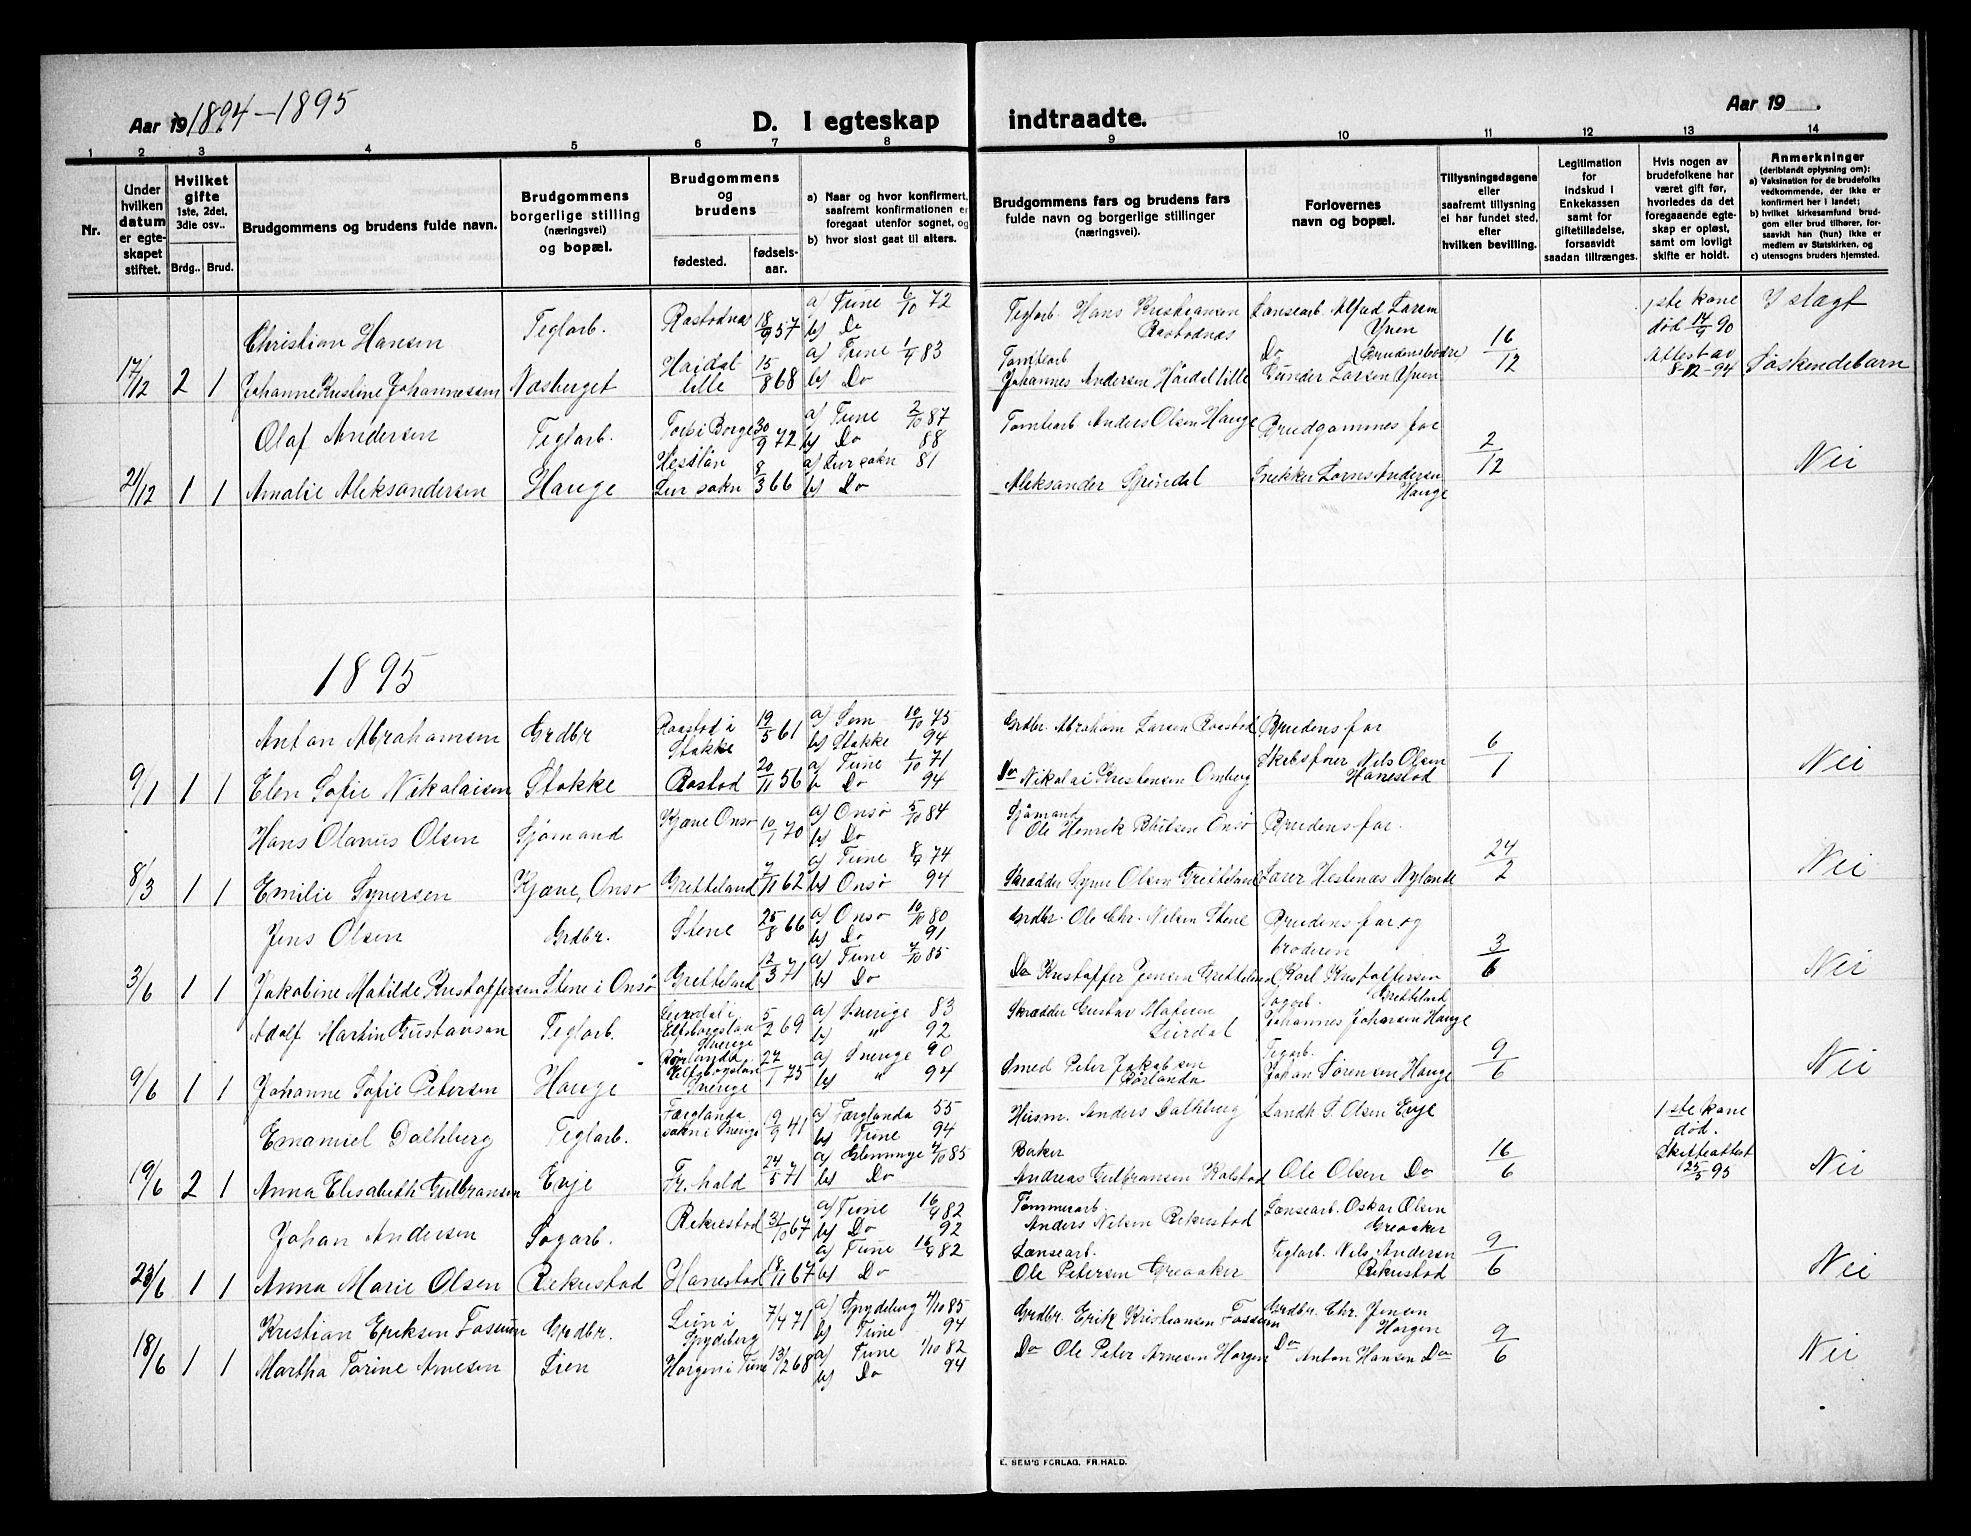 Aar 19 1894-1895
D. I egteskap indtraadte.
Aar 19 .
1 2 3 4 5 6 7 8 9 10 11 12 13 14
Nr.
Under hvilken datum er egteskapet stiftet.
Hvilket gifte 1ste, 2det, 3die osv..
Brdg.. Brud.
Brudgommens og brudens fulde navn.
Brudgommens borgerlige stilling (næringsvei) og bopæl.
Brudgommens og brudens
fødested. fødselsaar.
a) Naar og hvor konfirmert, saafremt konfirmationen er foregaat utenfor sognet, og
b) hvor sidst gaat til alters.
Brudgommens fars og brudens fars fulde navn og borgerlige stillinger (næringsvei).
Forlovernes navn og bopæl.
Tillysningsdagene eller saafremt tillysning ei har fundet sted, efter hvilken bevilling.
Legitimation for indskud i Enkekassen samt for giftetilladelse, forsaavidt saadan tiltrænges.
Hvis nogen av brudefolkene har været gift før, hvorledes da det foregaaende egteskap er opløst, samt om lovligt skifte er holdt.
Anmerkninger (deriblandt oplysning om):
a) Vaksination for de brudefolks vedkommende, der ikke er konfirmert her i landet;
b) hvilket kirkesamfund brudgom eller brud tilhører, forsaavidt han (hun) ikke er medlem av Statskirken, og
c) utensogns bruders hjemsted.
Christian Hansen Teglarb. Rastodnes 18/9 57 a) Tune 6/10 72 b) Do Teglarb. Hans Kristiansen Rastodnes Lansearb. Alfred Larsen Yven 1ste kone død 17/9 90 I slægt
17/12 2 1 Johanne Kristine Johannessen Nasberget Haidal lille 15/8 68 a) Tune 1/4 83 b) Do Tomtearb Johannes Andersen Häidal lille Do (Brudensbodre) Gunder Larsen Yven 16/12 Attest av 8-12-94 Søskendebarn
Olaf Andersen Teglarb. Torp i Borge 30/9 72 a) Tune 2/10 87 b) Do 88 Tomtearb Anders Olsen Hauge Brudgommes far
21/12 1 1 Amalie Aleksandersen Hauge Hesslan Lur sokn 8/3 66 a) Lur sokn 81 b) Do Aleksander Grindal Snekker Lorns Andersen Hauge 2/12 Nei
1895
Anton Abrahamsen Grdbr Raastod i Stokke 19/5 61 a) Sem 10/10 75 b) Stokke 94 Grdbr. Abraham Larsen Raastod Brudens far
9/1 1 1 Elen Sofie Nikolaisen Stokke Rostod 20/11 56 a) Tune 1/10 71 b Do 94 Do Nikolai Kristensen Omberg Skibsfører Nils Olsen Hanestod 6/1 Nei
Hans Olanus Olsen Sjømand Kjæne Onsø 10/1 70 a) Onsø 5/10 84 b) Do Sjømand Ole Henrik Onsø Brudens far.
8/3 1 1 Emilie Syversen Kjæne, Onsø Gretteland 7/11 62 a) Tune 8/9 74 b) Onsø 94 Skrædder Syver Olsen Gretteland Larer Hestenas Nylande 24/2 Nei
Jens Olsen Grdbr. Stene 25/8 66 a) Onsø 10/10 80 b) Do 91 Grdbr. Ole Chr. Nilsen Stene Brudens far og broderen
3/6 1 1 Jakobine Matilde Kristoffersen Stene i Onsø Gretteland 12/3 71 a) Tune 4/10 85 b) Do Do Kristoffer Jensen Gretteland Karl Kristoffersen Gretteland 3/6 Nei
Adolf Martin Gustavsen Teglarb. Leirdal i Elfsborgslan Sverige 5/2 69 a) Sverige 83 b) " 92 Skrædder Gustav Leirdal Sogarb. Johannes Johansen Hauge
9/6 1 1 Johanne Sofie Petersen Hauge Rørlanda Elfsborgslan Sverige 27/1 75 a) Sverige 90 b) " 94 Smed Peter Jakobsen Rørlanda Tegarb. Johan Sørensen Hauge 9/6 Nei
Emanuel Dalhberg Teglarb. Færglanda sokn i Sverige 19/9 41 a) Færglanda 55 b) Tune 94 Husm. Anders Dalhberg Landh S. Olsen Evje 1ste kone død.
19/6 2 1 Anna Elisabeth Gulbransen Evje Fr. hald 24/5 71 a) Glemminge 4/10 85 b) Do Baker Andreas Gulbransen Kalstad Ole Olsen Do 16/6 Skifteattest 25/5 95 Nei
Johan Andersen Sogarb. Rekustad 31/10 67 a) Tune 16/4 82 b) Do 92 Tømmerarb. Anders Nilsen Rekustad Lansearb. Oskar Olsen Greaaker
23/6 1 1 Anna Marie Olsen Rekustad Hanestod 18/11 67 a) Tune 16/4 82 b) Do Lansearb. Ole Petersen Greaaker Teglarb. Nils Andersen Rekustad 9/6 Nei
Kristian Eriksen Fossum Grdbr. Lien i Spydeberg 7/4 71 a) Spydeberg 4/10 85 b) Tune 94 Grdbr. Erik Kristiansen Fossum Grdbr. Chr. Jensen Horgen
18/6 1 1 Martha Torine Arnesen Lien Horgen i Tune 13/2 68 a) Tune 1/10 82 b) Do 94 Do Ole Peter Arnesen Horgen Do Anton Hansen Do 9/6 Nei
E. SEM'S FORLAG, FR.HALD.